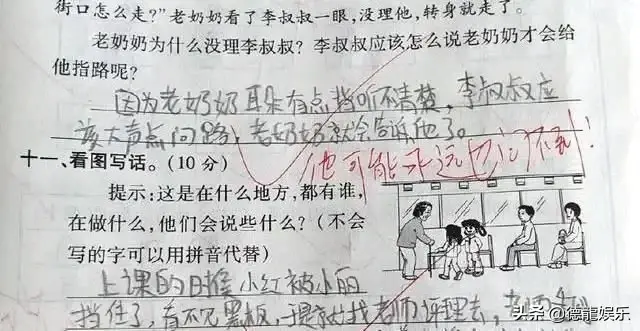 街口怎么走?”老奶奶看了李叔叔一眼,没理他,转身就走了。
老奶奶为什么没理李叔叔?李叔叔应该怎么说老奶奶才会给
他指路呢?
因为老奶奶耳朵有点挡听不清楚,李叔叔应
该大声点问路,老奶奶就会告诉他了。
他可能永远也问不到!
十一、看图写话。(10分)
提示:这是在什么地方,都有谁,
在做什么,他们会说些什么?(不会
写的字可以用拼音代替)
上课的时候小红被小丽
挡住了,看不见黑板,于是找老师评理去,老师
头条 @德龍娱乐